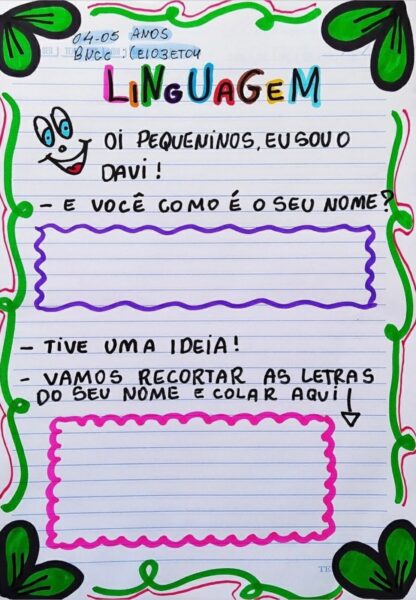 04-05 ANOS
BNCC: (EI03ET04
LINGUAGEM
OI PEQUENINOS, EU SOU O
DAVI!
- E VOCÊ COMO É O SEU NOME?
- TIVE UMA IDEIA!
- VAMOS RECORTAR AS LETRAS
DO SEU NOME E COLAR AQUI